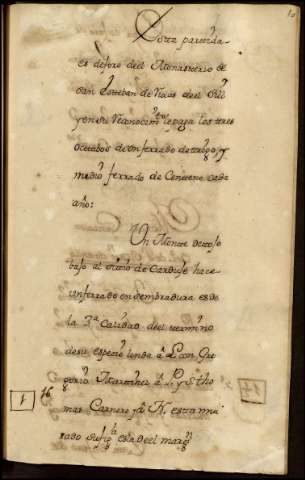 10
Esta parttida
es deforo deel Monasterio de
San Esteban de Rivas deel Sil
y en su Reconocimto. le paga los tres
Octabos de un ferrado de trigo, y
medio ferrado de Centeno cada
año:
Un Monte de tojo
bajo al sittio de hace
un ferrado en sembradura es de
la 3.a Calidad deel termino
de su especie linda á L. con Gre
gorio Martinez á P. y S. tho
mas Carnero y á N. esta mu
rado su fig.a es la deel marg.n
1
16
14